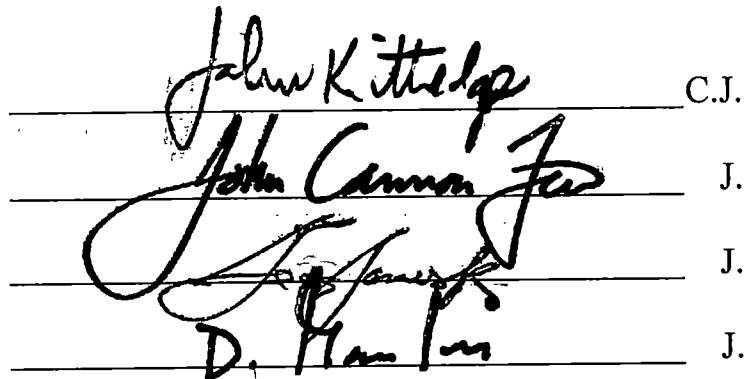 John Kittredge C.J.
John Cannon Few J.
James J.
D. J.